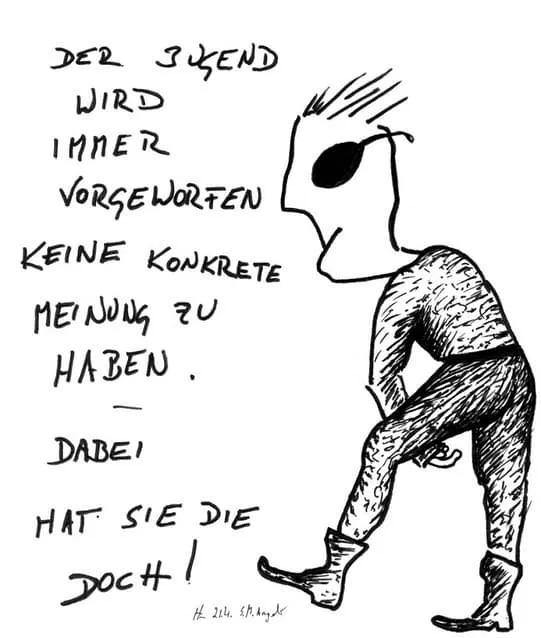 DER JUGEND
WIRD
IMMER
VORGEWORFEN
KEINE KONKRETE
MEINUNG ZU
HABEN.
—
DABEI
HAT SIE DIE
DOCH!